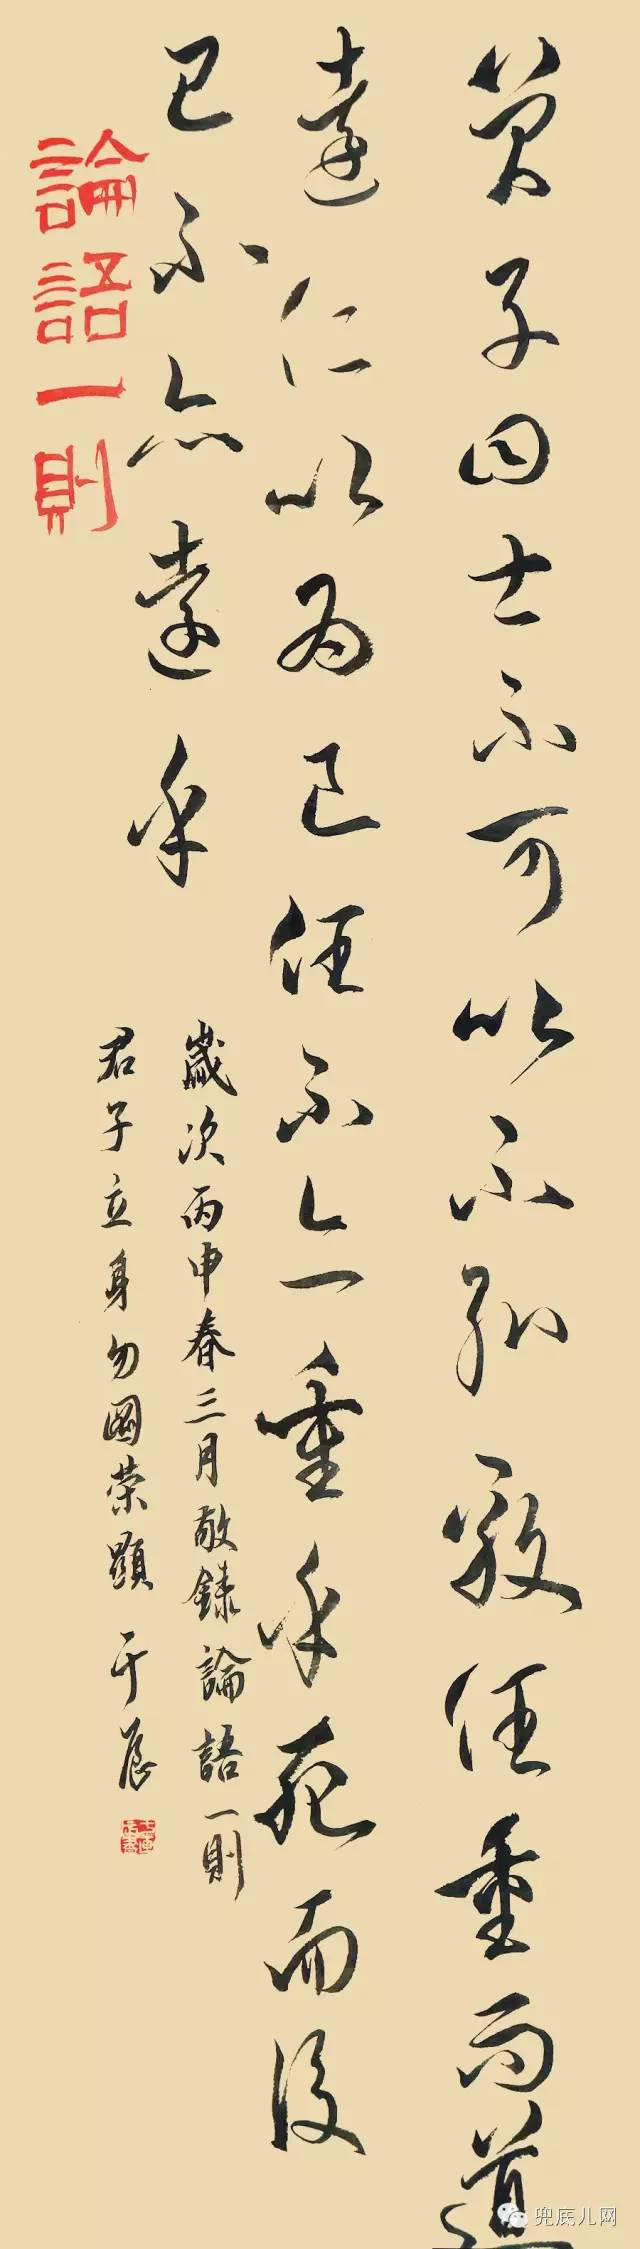 曾子曰士不可以不弘毅任重而道
遠仁以為己任不亦重乎死而後
已不亦遠乎
論語一則
歲次丙申春三月敬錄論語一則
君子立身勿圖榮顯 于晨
兜底儿网